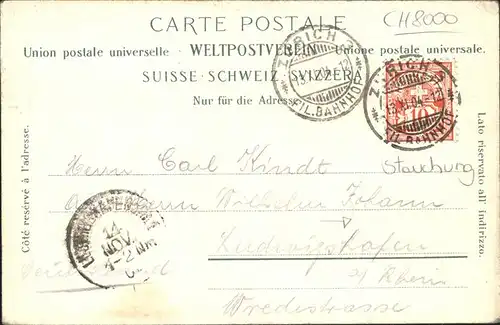 CARTE POSTALE
CH8000
Union postale universelle - WELTPOSTVEREIN - Unione postale universale.
SUISSE · SCHWEIZ · SVIZZERA
Nur für die Adresse
ZÜRICH
13.XI.04.-12
FIL.BAHNHOF
ZÜRICH
13.XI.04.-12
FIL.BAHNHOF
Côté réservé à l'adresse.
Lato riservato all'indirizzo.
Herrn Carl Kindt
Stauburg
Herrn Wilhelm Johann
Ludwigshafen
a/Rhein
Wredestrasse
14
NOV.
1-2 Nm